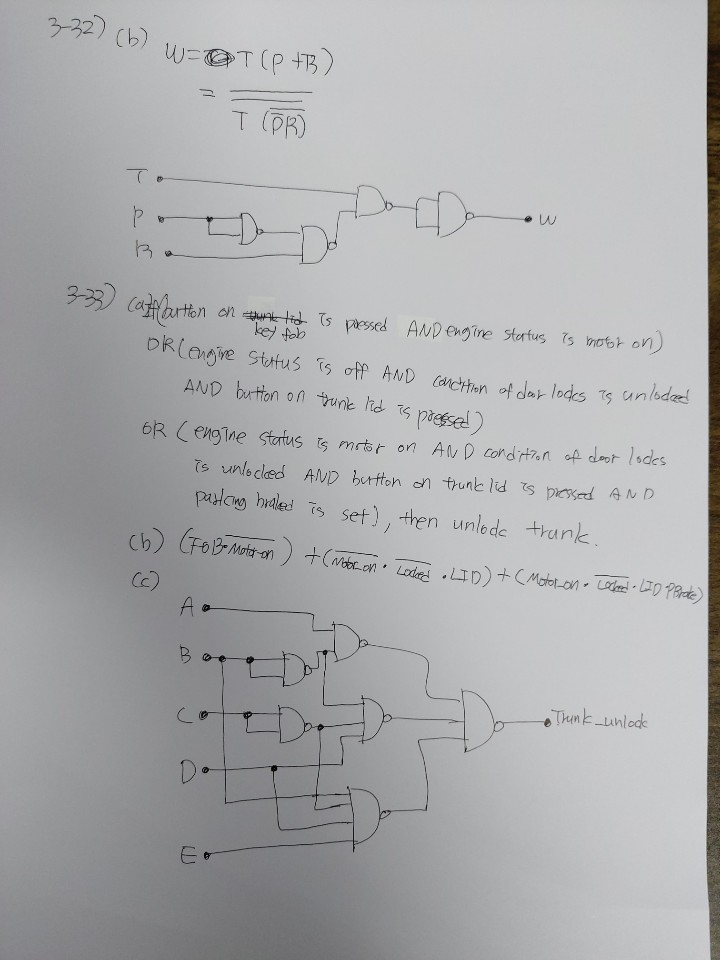 3-32) (b) W = T (P + R)
= \overline{\overline{T (\overline{\overline{P}R})}}
T
P
R
W
3-33) (a) If (button on key fob is pressed AND engine status is motor on)
OR (engine status is off AND condition of door locks is unlocked
AND button on trunk lid is pressed)
OR (engine status is motor on AND condition of door locks
is unlocked AND button on trunk lid is pressed AND
parking braked is set), then unlock trunk.
(b) (FOB·\overline{Motor-on}) + (\overline{Motor_on} · \overline{Locked} · LID) + (Motor_on · \overline{Locked} · LID · PBrake)
(c)
A
B
C
D
E
Trunk_unlock